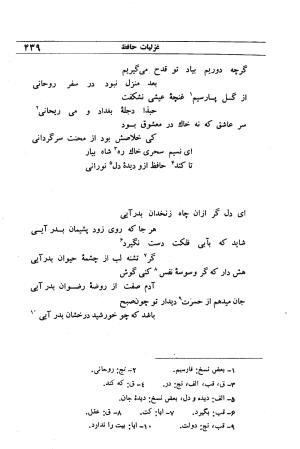 غزلیات حافظ
۴۳۹
گرچه دوریم بیاد تو قدح می‌گیریم
بعد منزل نبود در سفر روحانی
از گل پارسیم¹ غنچهٔ عیشی نشکفت
حبذا دجلهٔ بغداد و می ریحانی²
سر عاشق که نه خاك در معشوق بود
کی خلاصش بود از محنت سرگردانی
ای نسیم سحری خاك ره³ شاه بیار
تا کند⁴ حافظ ازو دیدهٔ دل⁵ نورانی
ای دل گر ازان چاه زنخدان بدرآیی
هر جا که روی زود پشیمان بدرآیی
شاید که بآبی فلکت دست نگیرد⁶
گر⁷ تشنه لب از چشمهٔ حیوان بدرآیی
هش دار که گر وسوسهٔ نفس⁸ کنی گوش
آدم صفت از روضهٔ رضوان بدرآیی
جان میدهم از حسرت⁹ دیدار تو چون‌صبح
باشد که چو خورشید درخشان بدرآیی¹⁰
۱- بعض نسخ: فارسیم. ۲- نج: روحانی.
۳- ق، قب، الف، نج: در. ۴- ق: که کند.
۵- الف: دیده و دل، بعض نسخ: دیدهٔ جان.
۶- قب: بگیرد. ۷- ایا: کت. ۸- ق: عقل.
۹- قب، نج: دولت. ۱۰- ایا: بیت را ندارد.